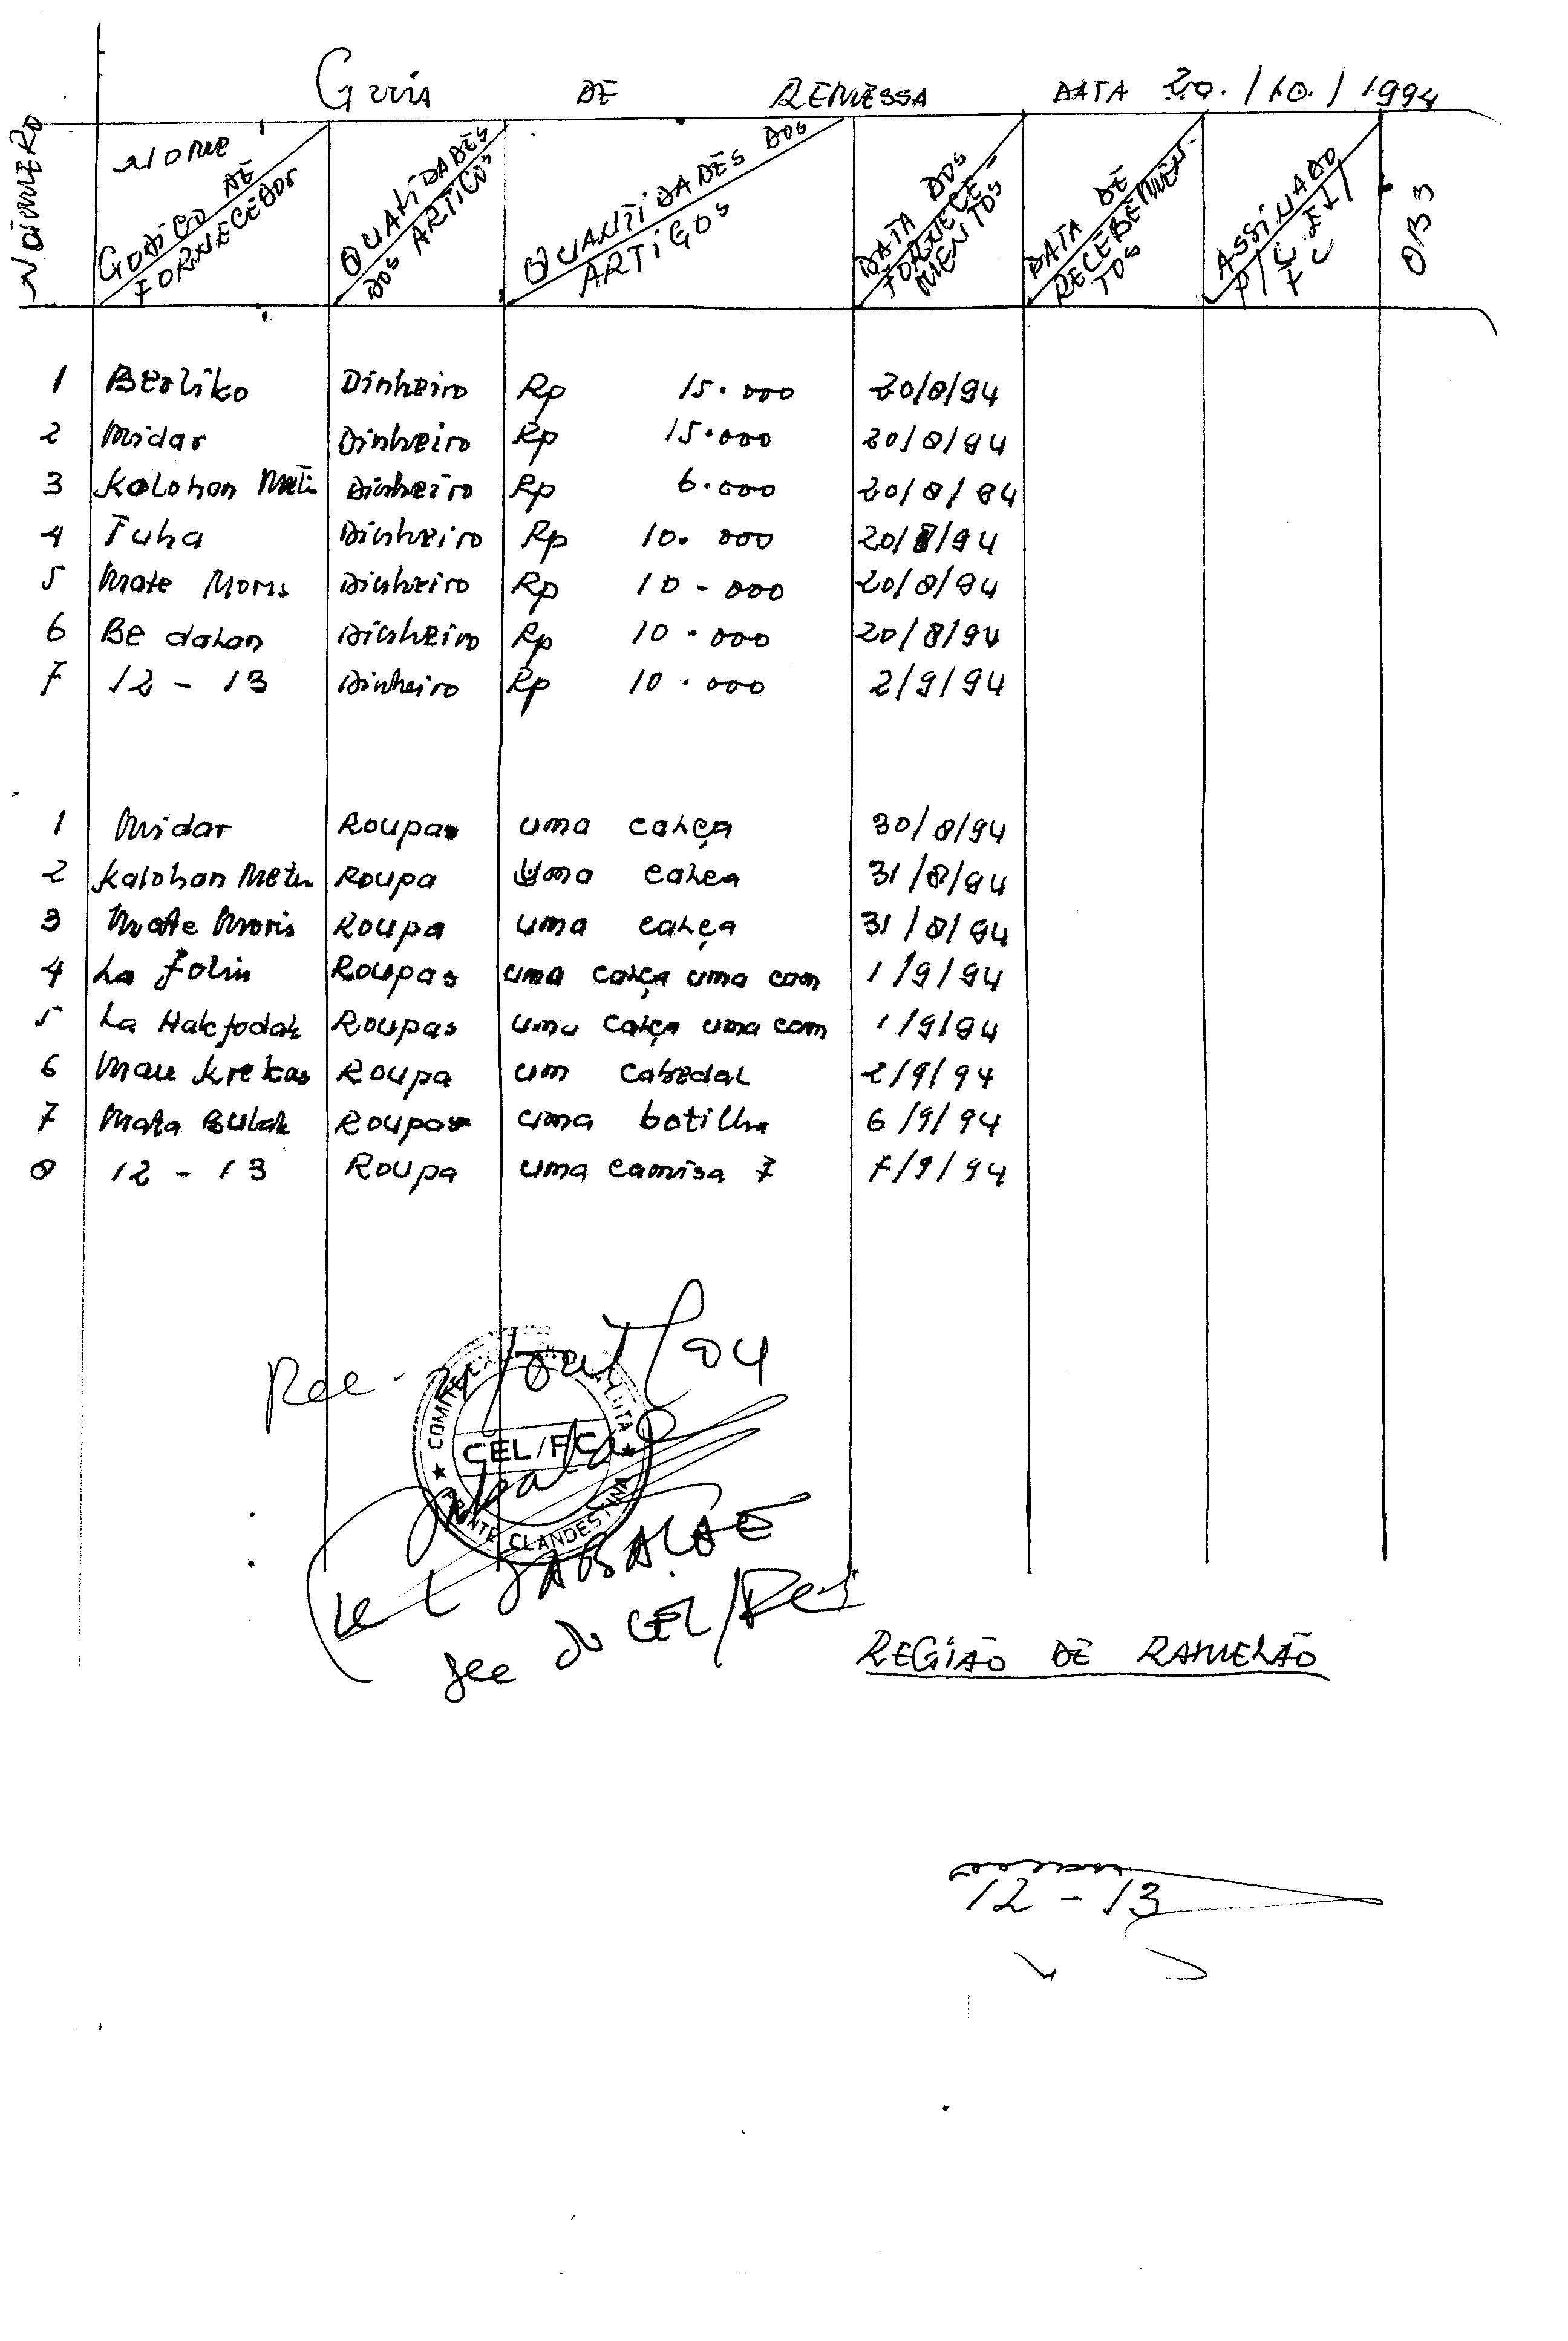 Guia DE REMESSA DATA 20./10./1994
NÚMERO
NOME
CODIGO DE FORNECEDOR
QUALIDADES DOS ARTIGOS
QUANTIDADES DOS ARTIGOS
DATA DOS FORNECE-MENTOS
DATA DE RECEBEMEN-TOS
ASSINADO P/ C EL/ FC
OBS
1 Berliko Dinheiro Rp 15.000 20/8/94
2 Midar Dinheiro Rp 15.000 20/8/94
3 Kalohan Metin Dinheiro Rp 6.000 20/8/94
4 Fuha Dinheiro Rp 10.000 20/8/94
5 Mate Moris Dinheiro Rp 10-000 20/8/94
6 Be dahan Dinheiro Rp 10.000 20/8/94
7 12-13 Dinheiro Rp 10.000 2/9/94
1 Midar Roupas uma calça 30/8/94
2 Kalohan Metin Roupa Uma calca 31/8/94
3 Mate Moris Roupa uma calça 31/8/94
4 La Folin Roupas uma calça uma cam 1/9/94
5 La Hakfodak Roupas uma calça uma cam 1/9/94
6 Mau Krekas Roupa um cabedal 2/9/94
7 Mata Bulak Roupas uma botilha 6/9/94
8 12-13 Roupa uma camisa 7 7/9/94
Rec. /94
COMITÉ LUTA
CEL/FC
FRENTE CLANDESTINA
SABALAE
Sec do CEL/
REGIÃO DE RAMELÃO
12-13